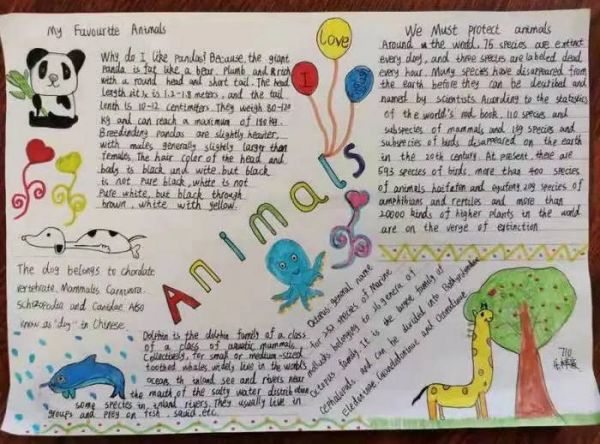 My Favourite Animals
Why do I like Pandas? Because, the giant
Panda is fat like a bear. Plumb and & rich
with a round head and short tail. The head
length
is 1.2-1.8 meters. and the tail
lenth is 10-12 centimeters. They weigh 80-120
kg and can reach a maximum of 180 kg.
Breedending pandas are slightly heavier,
with males generally slightly larger than
females. The hair color of the head and
body is black and wite. but black
is not pure black, white is not
Pure white, but black through
brown, white with yellow.
The dog belongs to chordate
vertebrate. Mammalas Carnivora.
and Canidae. Also
know as "dog" in Chinese.
Dolphin is the dolphin family of a class
of a class of aquatic mammals.
Collectively, for small or medium-sized
toothed whales widely live in the world's
ocean. th inland sea and rivers near
the mouth of the salty water distribution
some species in inland rivers. They usually live in
groups and prey on fist. squid. etc.
I
Love
Animals
Octopus general name
for 252 species of Marine
mollusks belonging to 26 genera of
Octopus family. It is the borne family of
cephalopods. and can be divided into
Eledoninae
and
We Must protect animals
Around in the world, 75 species are extinct
every day, and three species are labeled dead
every hour. Many species have disappeared from
the earth before they can be described and
named by scientists. According to the statistics
of the world's red book, 110 species and
subspecies of mammals and 139 species and
subspecies of birds disappeared on the earth
in the 20th century. At present, there are
593 species of birds, more than 400 species
of animals
209 species of
amphibians and reptiles and more than
20000 kinds of higher plants in the world
are on the verge of extinction
710